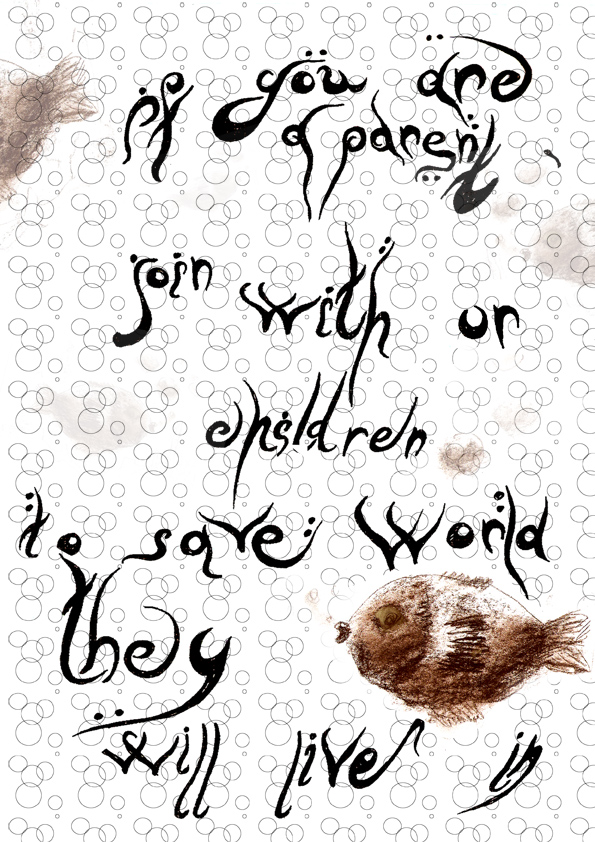 if you are
a parent
join with or
children
to save World
they
will live in